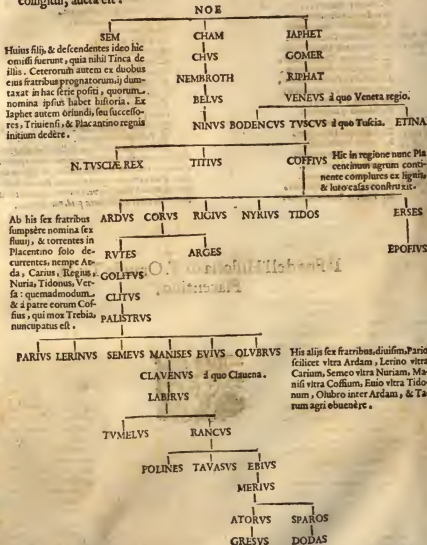 colligitur, aucta est.
NOE
SEM CHAM IAPHET
Huius filij, & descendentes ideo hic
omissi fuerunt, quia nihil Tinca de
illis. Ceterorum autem ex duobus
eius fratribus prognatorum, ij dum-
taxat in hac serie positi, quorum
nomina ipsius habet historia. Ex
Iaphet autem oriundi, seu successo-
res, Triuiensi, & Placantino regnis
initium dedêre.
CHVS GOMER
NEMBROTH RIPHAT
BELVS VENEVS à quo Veneta regio.
NINVS BODENCVS TVSCVS à quo Tuscia. ETINA
N. TVSCIÆ REX TITIVS COFFIVS
Hic in regione nunc Pla
centinum agrum conti-
nente complures ex lignis,
& luto casas construxit.
Ab his sex fratribus
sumpsêre nomina sex
fluuij, & torrentes in
Placentino solo de-
currentes, nempe Ar-
da, Carius, Regius,
Nuria, Tidonus, Ver-
sa: quemadmodum
& à patre eorum Cof-
fius, qui mox Trebia,
nuncupatus est.
ARDVS CORVS RIGIVS NYRIVS TIDOS ERSES
RVTES ARGES EPOFIVS
GOLFIVS
CLITVS
PALISTRVS
PARIVS LERINVS SEMEVS MANISES EVIVS OLVBRVS
His alijs sex fratribus, diuisim, Pario
scilicet vltra Ardam, Lerino vltra
Carium, Semeo vltra Nuriam, Ma-
nisi vltra Coffium, Euio vltra Tido-
num, Olubro inter Ardam, & Ta-
rum agri obuenêre.
CLAVENVS à quo Clauena.
LABIRVS
TVMELVS RANCVS
POLINES TAVASVS EBIVS
MERIVS
ATORVS SPAROS
GRESVS DODAS